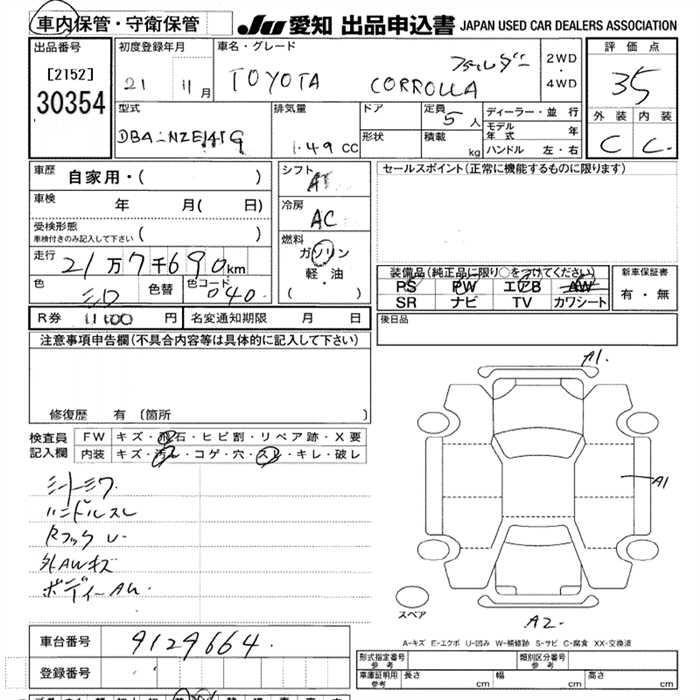 車内保管・守衛保管 JU 愛知 出品申込書 JAPAN USED CAR DEALERS ASSOCIATION
出品番号 初度登録年月 車名・グレード 2WD・4WD 評価点
[2152] 21 11月 TOYOTA CORROLLA フィールダー 35
30354
型式 排気量 ドア 定員 5人 ディーラー・並行 外装 内装
DBA-NZE141G 1.49cc 形状 積載 kg モデル年式 年 C C
ハンドル 左・右
車歴 自家用・( ) シフト AT セールスポイント(正常に機能するものに限ります)
車検 年 月( 日) 冷房 AC
受検形態
車検付きのみ記入して下さい ( )
燃料 ガソリン
軽・油
( )
走行 21万7千690km
色 シロ 色替 色コード 040
装備品(純正品に限り○をつけてください) 新車保証書
PS PW エアB AW 有・無
SR ナビ TV カワシート
R券 11100円 名変通知期限 月 日 後日品
注意事項申告欄(不具合内容等は具体的に記入して下さい)
修復歴 有 (箇所
検査員 FW キズ・飛石・ヒビ割・リペア跡・X要
記入欄 内装 キズ・汚レ・コゲ・穴・スレ・キレ・破レ
シートシワ
ハンドルスレ
Rフック
外AWキズ
ボディー
A1
A1
スペア
A2
A-キズ E-エクボ U-凹み W-補修跡 S-サビ C-腐食 XX-交換済
車台番号 9129664
登録番号
型式指定番号 参考 類別区分番号 参考
車庫証明用 参考 長さ cm 幅 cm 高さ cm